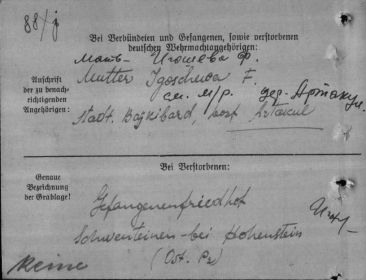 88/j
Bei Verbündeten und Gefangenen, sowie verstorbenen
deutschen Wehrmachtangehörigen:
мать- Игошева Ф.
Anschrift
der zu benach-
richtigenden
Angehörigen:
Mutter Igoschewa F.
ст. м/р. дер. Артакул.
Stadt. Bajkibard, post Artakul
Bei Verstorbenen:
Genaue
Bezeichnung
der Grablage!
Gefangenenfriedhof
Schwenteinen-bei Hohenstein
(Ost. Pr)
keine